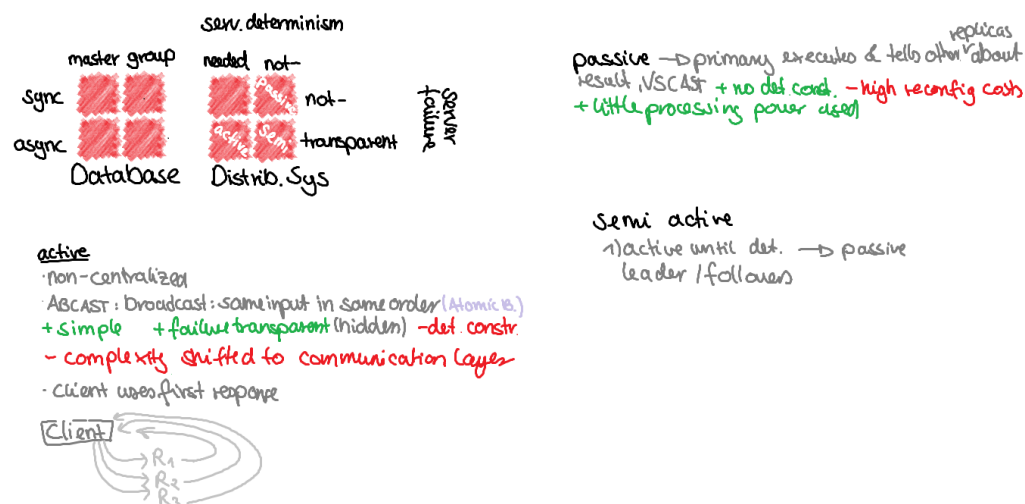 serv. determinism
master group
needed not-
sync
passive
not-
async
active
semi
transparent
server
failure
Database
Distrib. Sys
passive → primary executes & tells other replicas about
result, VSCAST + no det. const. - high reconfig costs
+ little processing power used
semi active
1) active until det. → passive
leader / followers
active
· non-centralized
ABCAST: broadcast: same input in same order (Atomic B.)
+ simple + failure transparent (hidden) - det. constr.
- complexity shifted to communication layer
· Client uses first response
Client
R1
R2
R3